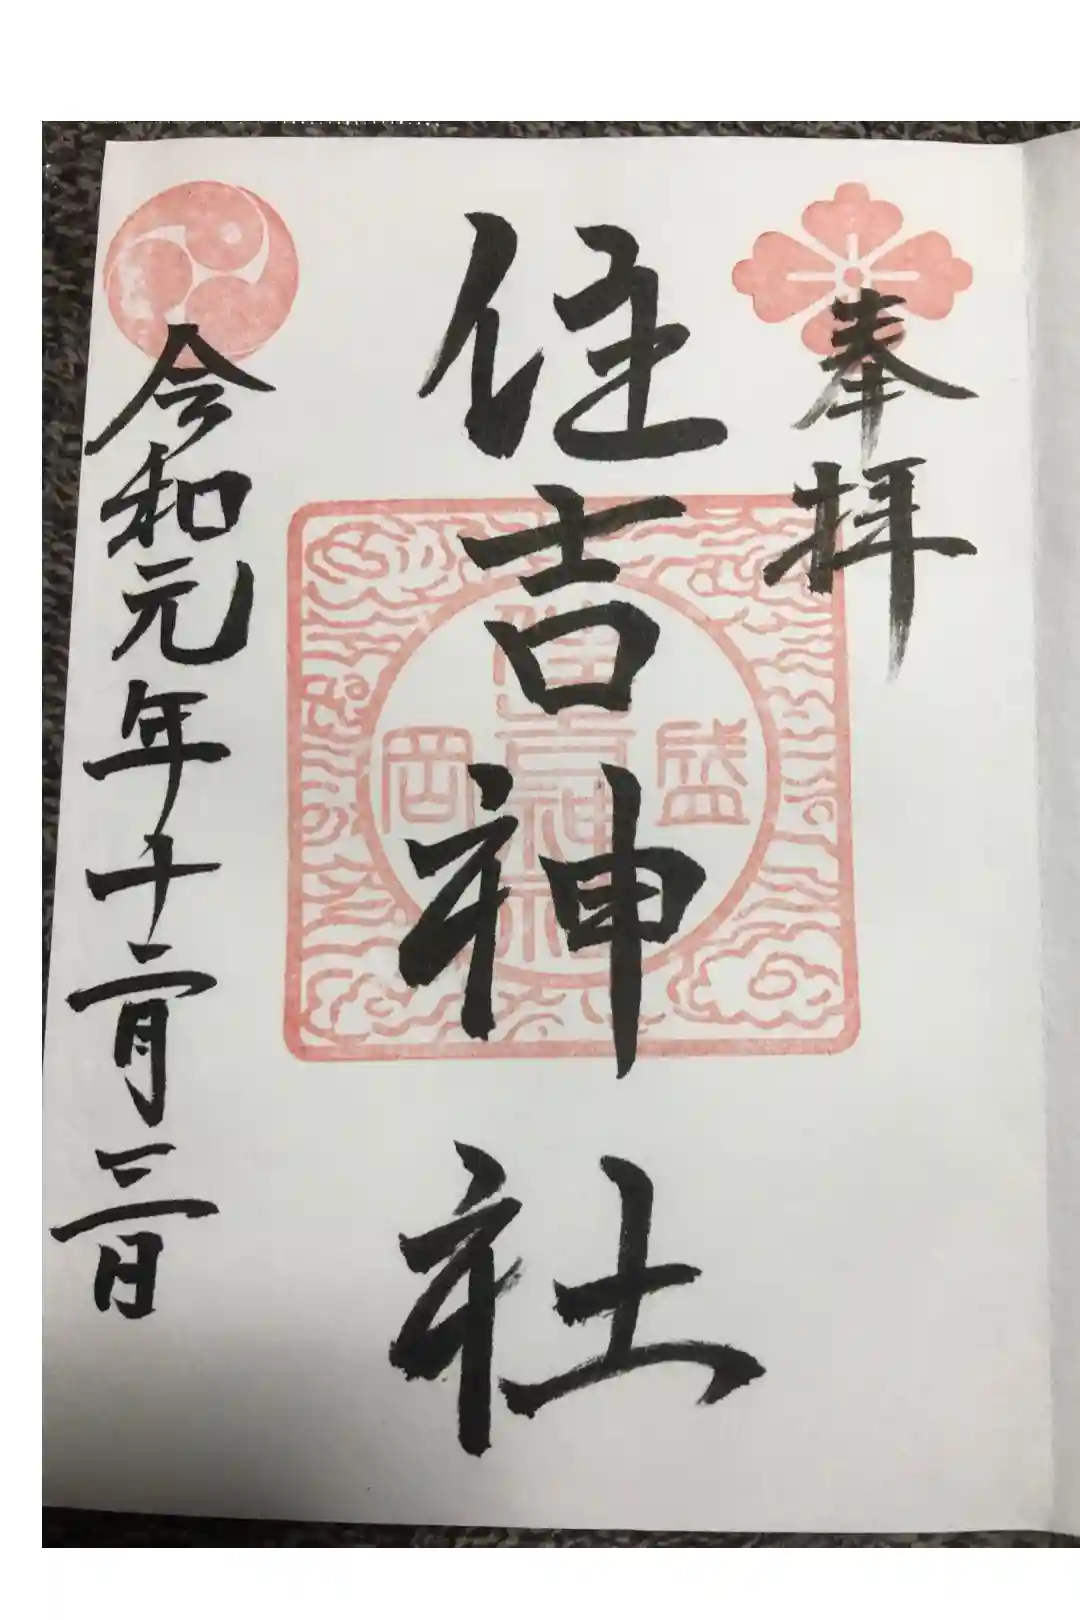 奉拝
盛
住吉神社
住吉神社
岡
令和元年十二月三日